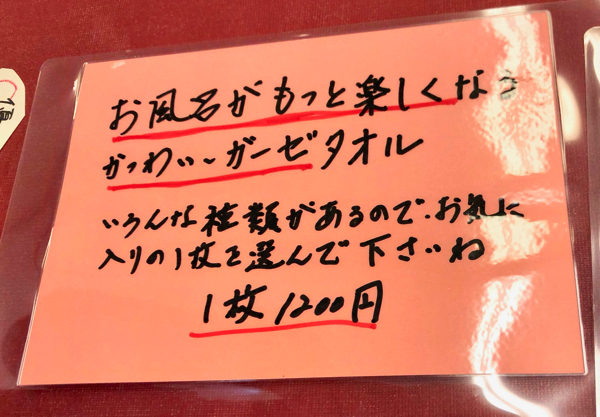 お風呂がもっと楽しくなる
かっわいぃ〜ガーゼタオル
いろんな種類があるので、お気に
入りの1枚を選んで下さいね
1枚1200円